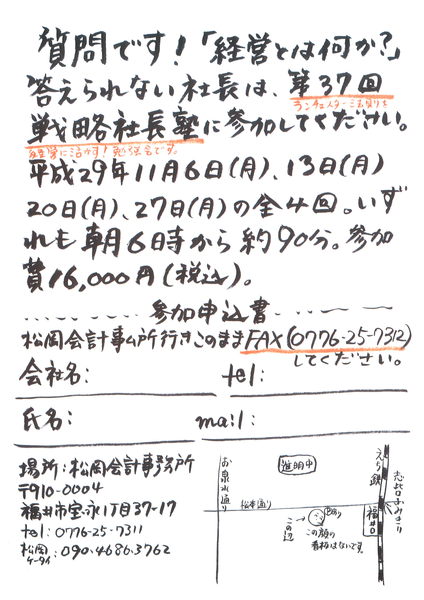 質問です!「経営とは何か?」
答えられない社長は、第37回
ランチェスター法則を
戦略社長塾に参加してください。
経営に活かす!勉強会です。
平成29年11月6日(月)、13日(月)
20日(月)、27日(月)の全4回。いず
れも朝6時から約90分。参加
費16,000円(税込)。
参加申込書
松岡会計事ム所行きこのままFAX(0776-25-7312)
してください。
会社名: tel:
氏名: mail:
場所:松岡会計事務所
〒910-0004
福井市宝永1丁目37-17
tel:0776-25-7311
松岡ケータイ:090-4686-3762
お泉水通り
進明中
松本通り
ココ
この辺
この顔の
看板はないです
えち鉄
福井口